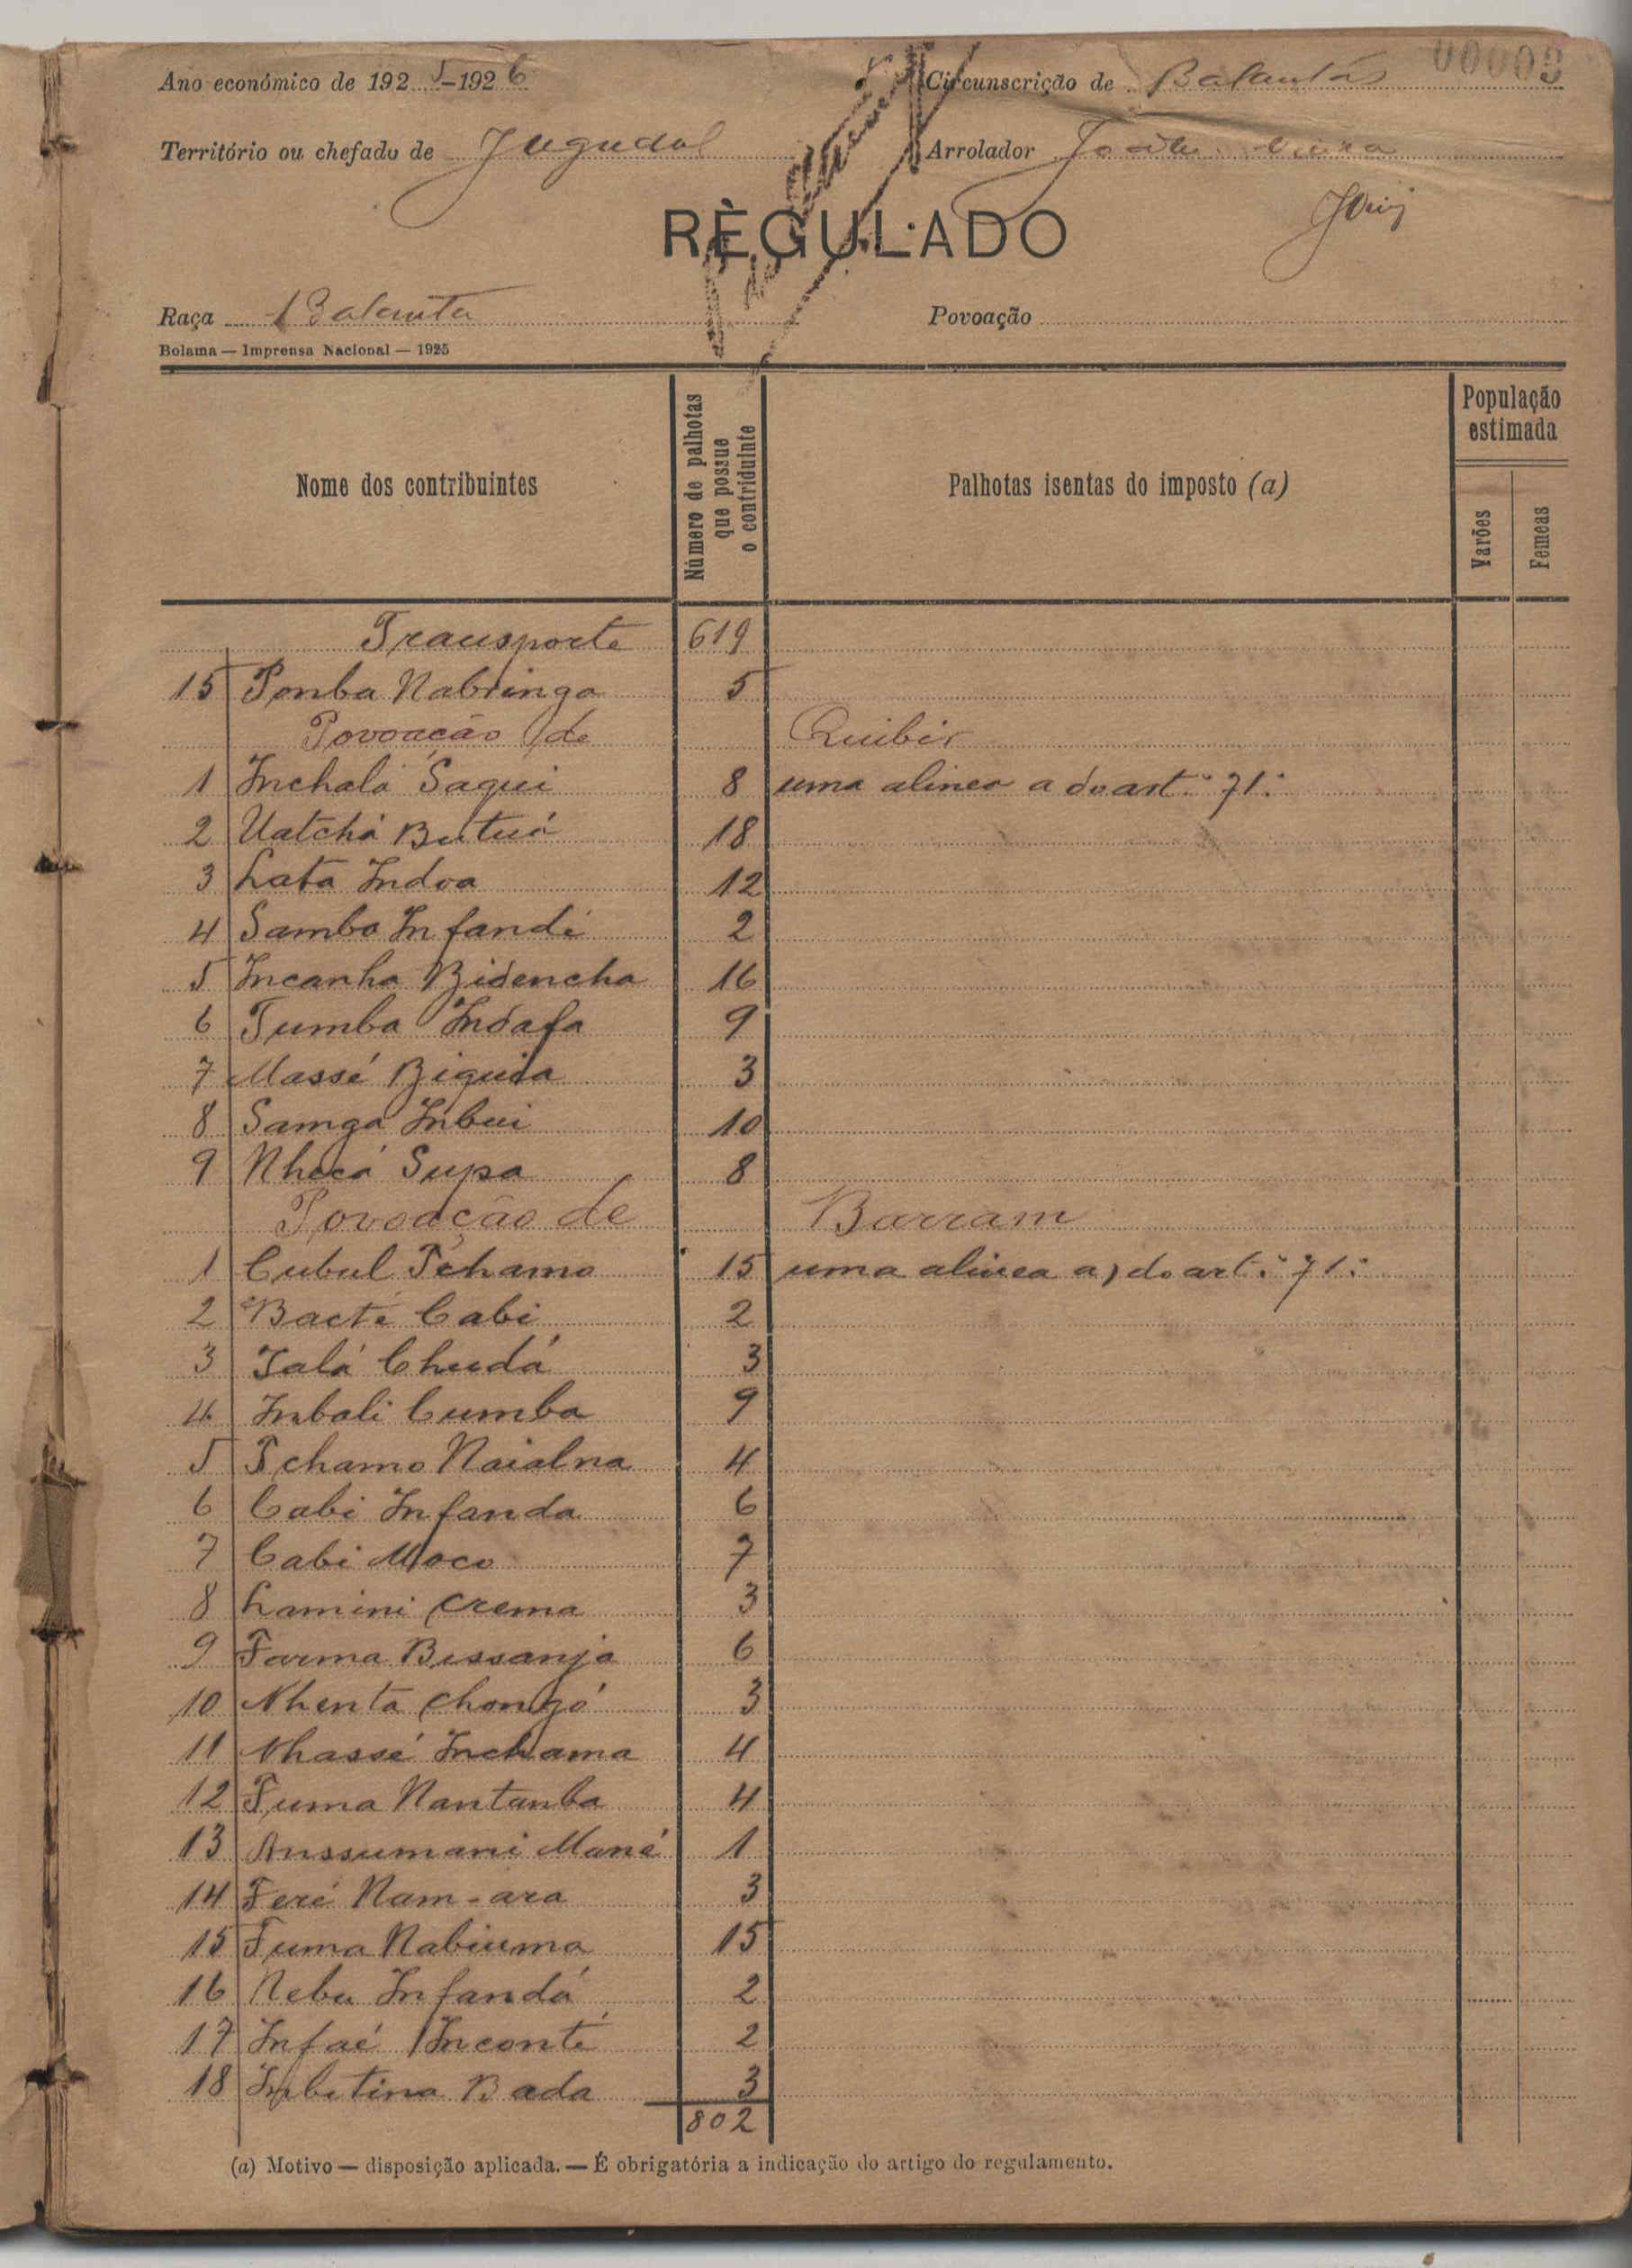 00003
Ano económico de 1925-1926 Circunscrição de Balantas
Território ou chefado de Jugudul Arrolador João Vieira
RÈGULADO
Raça Balanta Povoação
Bolama — Imprensa Nacional — 1925
Nome dos contribuintes
Número de palhotas que possue o contriduinte
Palhotas isentas do imposto (a)
População estimada
Varões
Femeas
Transporte 619
15 Ponba Nabringa 5
Povoação de Quibir
1 Inchalá Sagui 8 uma alinea a do art.º 71.º
2 Uatchá Butuá 18
3 Lata Indoa 12
4 Samba Infandi 2
5 Incanha Bidencha 16
6 Tumba Indafa 9
7 Massé Biguida 3
8 Samga Inbui 10
9 Nhecá Supa 8
Povoação de Barram
1 Cubul Tchamo 15 uma alinea a) do art.º 71.º
2 Bacté Cabi 2
3 Talá Chudá 3
4 Inbali Cumba 9
5 Tchamo Naialna 4
6 Cabi Infanda 6
7 Cabi Moco 7
8 Lamini Crema 3
9 Farma Bissanja 6
10 Nhenta Chongó 3
11 Nhassé Inchama 4
12 Fuma Nantanba 4
13 Anssumani Mané 1
14 Feré Nam-ara 3
15 Fuma Nabiuma 15
16 Nebu Infandá 2
17 Infaé Inconté 2
18 Inbitina Bada 3
802
(a) Motivo — disposição aplicada. — É obrigatória a indicação do artigo do regulamento.